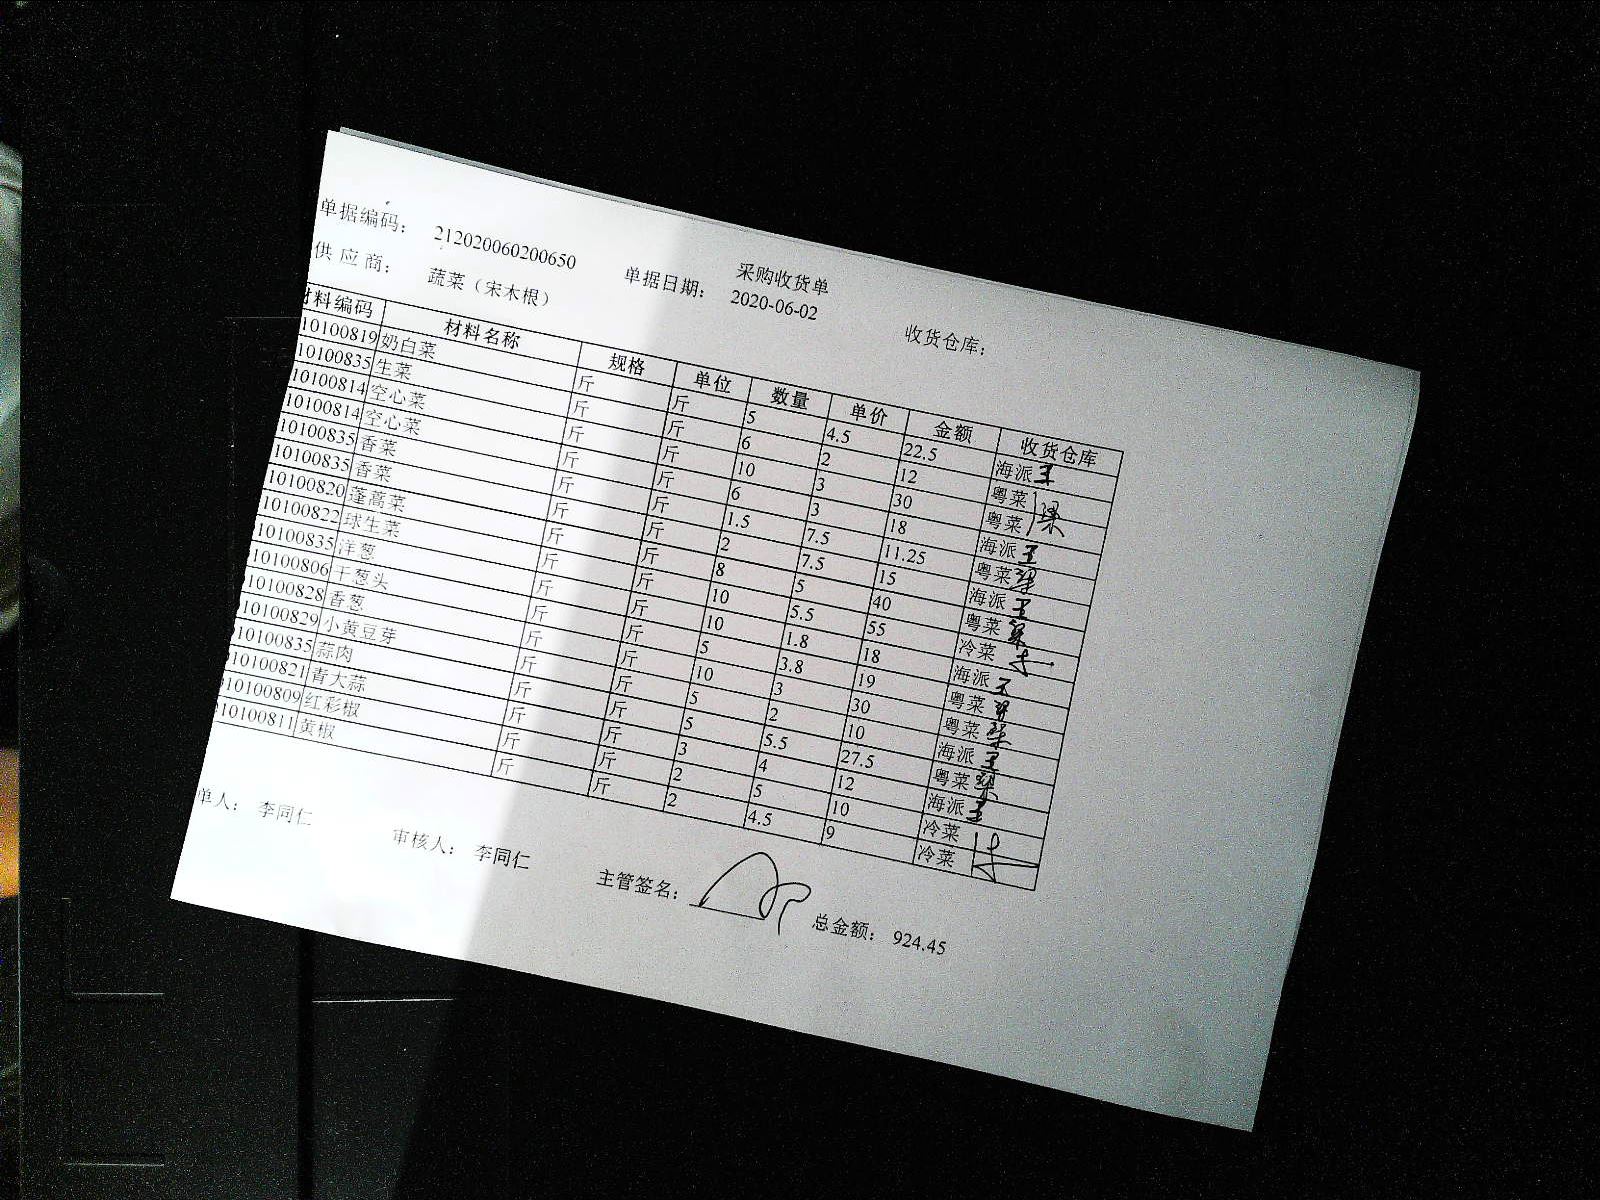 采购收货单
单据编码： 212020060200650 单据日期： 2020-06-02 收货仓库：
供 应 商： 蔬菜（宋木根）
材料编码 材料名称 规格 单位 数量 单价 金额 收货仓库
10100819 奶白菜 斤 斤 5 4.5 22.5 海派 王
10100835 生菜 斤 斤 6 2 12 粤菜
10100814 空心菜 斤 斤 10 3 30 粤菜
10100814 空心菜 斤 斤 6 3 18 海派 王
10100835 香菜 斤 斤 1.5 7.5 11.25 粤菜
10100835 香菜 斤 斤 2 7.5 15 海派 王
10100820 蓬蒿菜 斤 斤 8 5 40 粤菜
10100822 球生菜 斤 斤 10 5.5 55 冷菜
10100835 洋葱 斤 斤 10 1.8 18 海派 王
10100806 干葱头 斤 斤 5 3.8 19 粤菜
10100828 香葱 斤 斤 10 3 30 粤菜
10100829 小黄豆芽 斤 斤 5 2 10 海派 王
10100835 蒜肉 斤 斤 5 5.5 27.5 粤菜
10100821 青大蒜 斤 斤 3 4 12 海派 王
10100809 红彩椒 斤 斤 2 5 10 冷菜
10100811 黄椒 斤 斤 2 4.5 9 冷菜
单人： 李同仁 审核人： 李同仁 主管签名： 总金额： 924.45